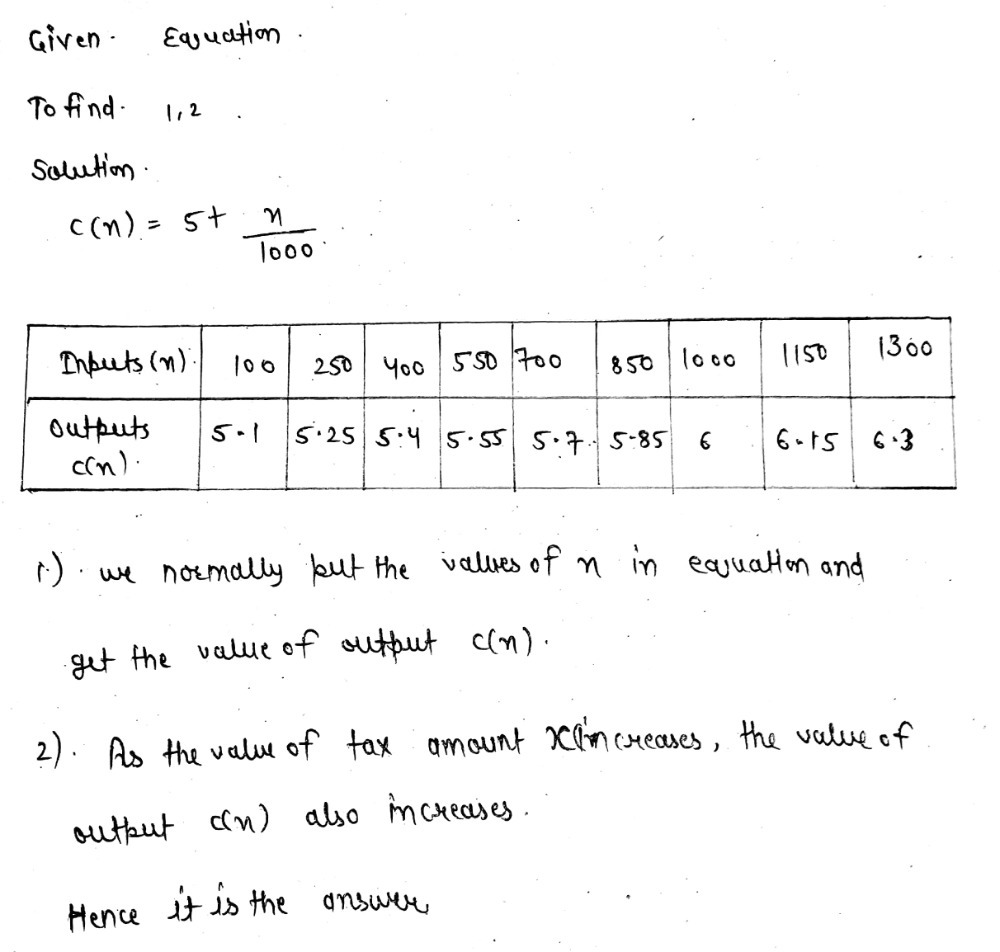 Given. Equation.
To find. 1,2.
Solution.
c(n) = 5 + n/1000.
Inputs (n). 100 250 400 550 700 850 1000 1150 1300
Outputs c(n). 5.1 5.25 5.4 5.55 5.7 5.85 6 6.15 6.3
1.). we normally put the values of n in equation and
get the value of output c(n).
2). As the value of tax amount x increases, the value of
output c(n) also increases.
Hence it is the answer